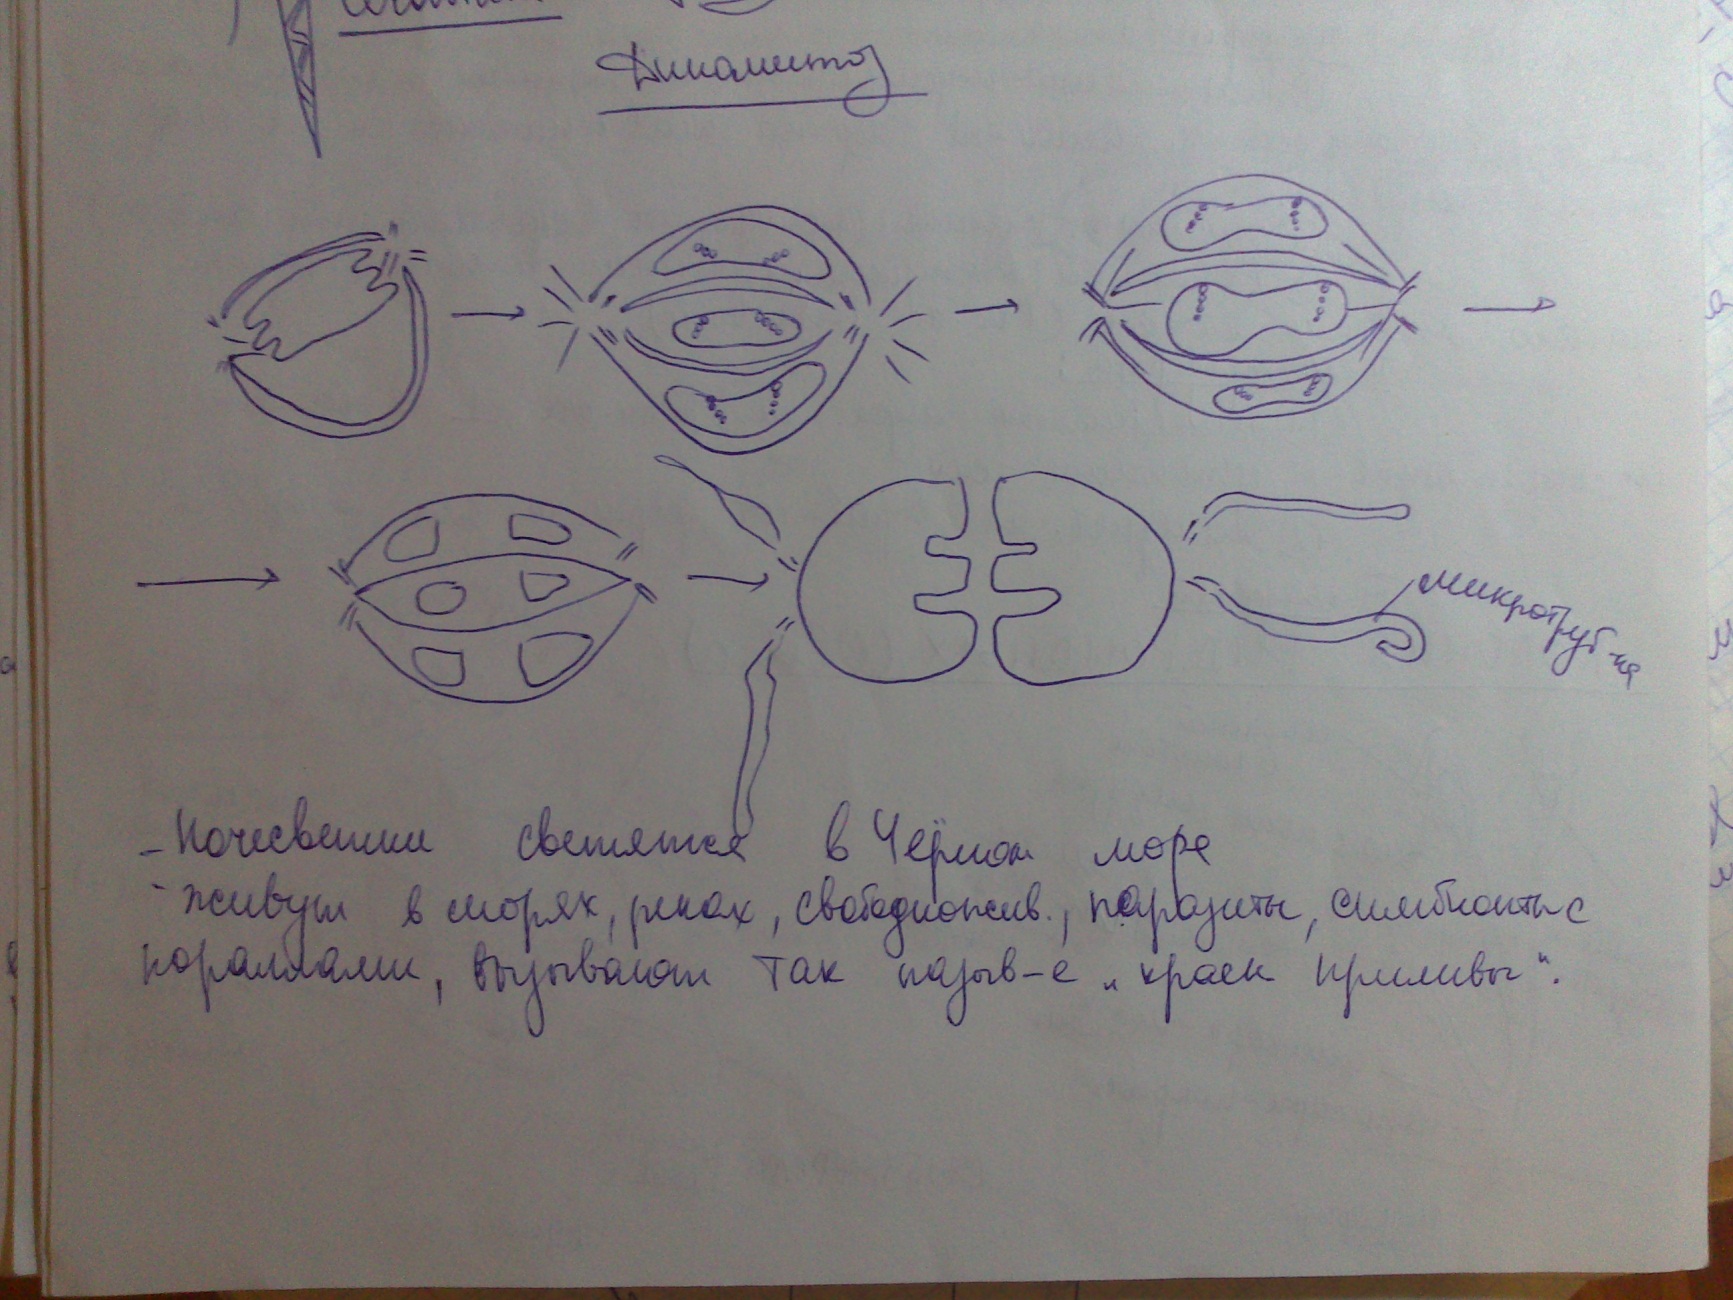 Динамитоз
микротруб-ка
- Ночесветки светятся в Чёрном море
- живут в морях, реках, свободножив., паразиты, симбионты с
кораллами, вызывают так назыв-е „красн приливы".